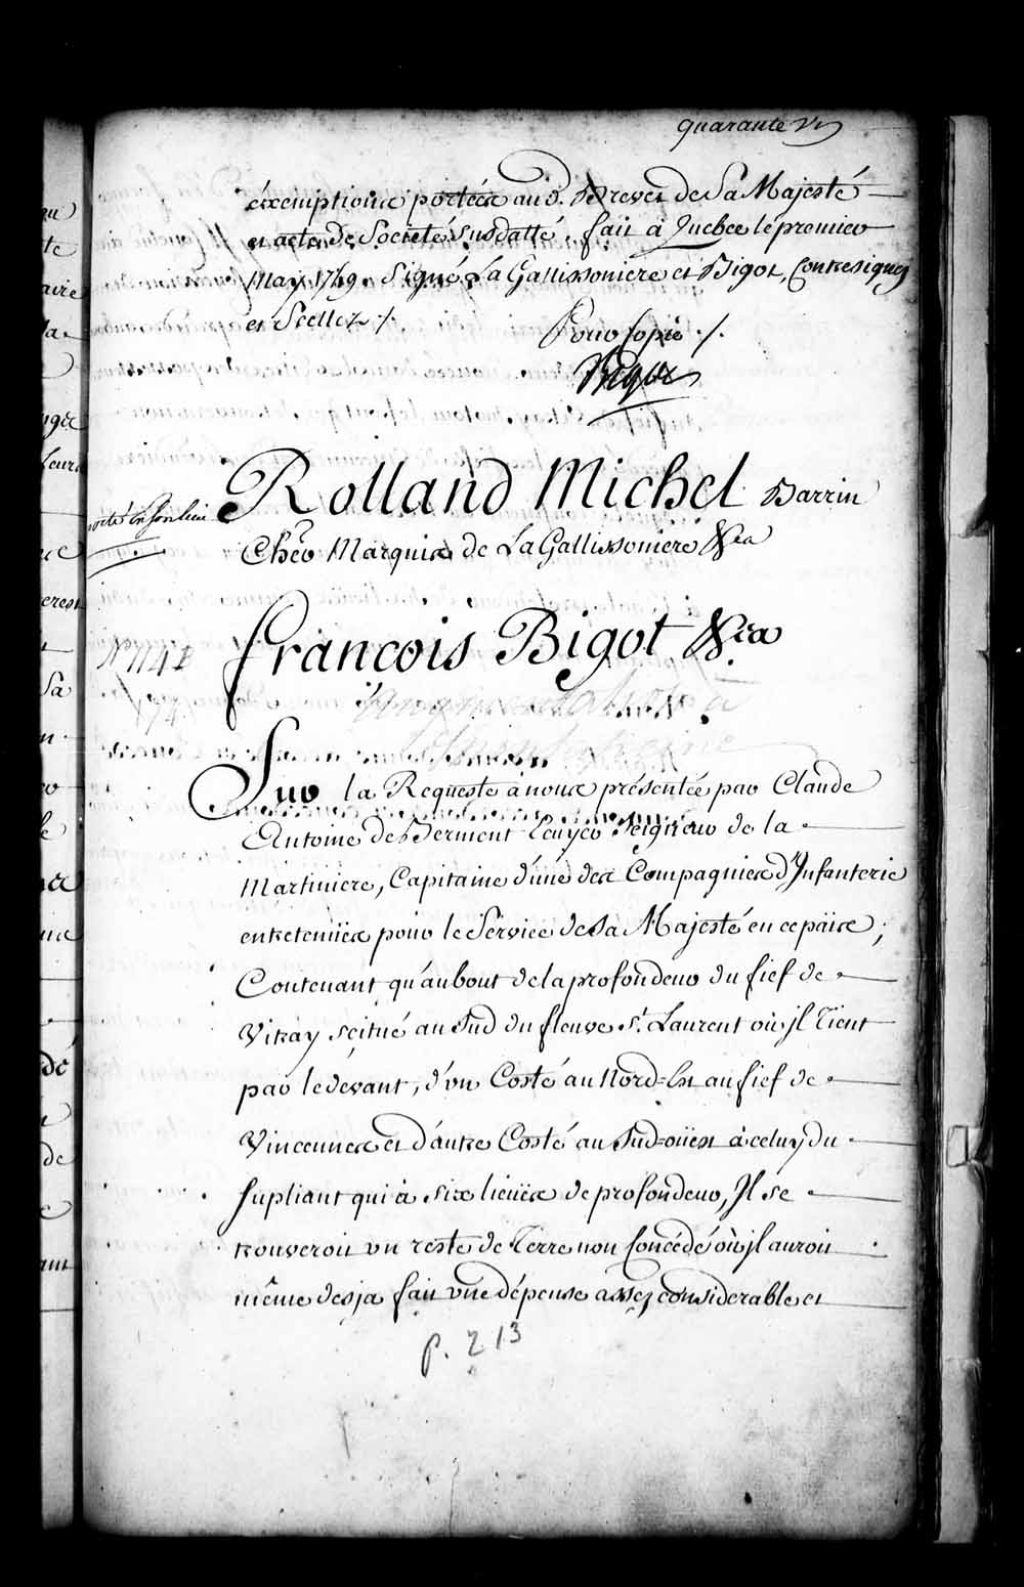 quarante un
éxemptions portées aud. Brevet de Sa Majesté
et acte de Societé susdatté, fait à Quebec le premier
May 1749. Signé La Gallissoniere et Bigot, Contresigné
et Scellez ./.
Pour Copie ./.
Bigot
Rolland Michel Barrin
Cher Marquis de La Gallissoniere &ca
François Bigot &ca
augmentation à
Sur la Requeste à nous présentée par Claude
Antoine de Berment Ecuyer Seigneur de la
Martiniere, Capitaine d'une des Compagnies d'Infanterie
entretenües pour le Service de Sa Majesté en ce païs;
Contenant qu'au bout de la profondeur du fief de
Vitray scitué au Sud du fleuve St. Laurent où jl tient
par le devant, d'un Costé au Nord=Est au fief de
Vincennes et d'autre Costé au Sud=oüest à celuy du
supliant qui à six lieües de profondeur, Jl se
trouveroit un reste de Terre non Concédé où jl auroit
même desja fait une dépense assez considerable et
p. 213